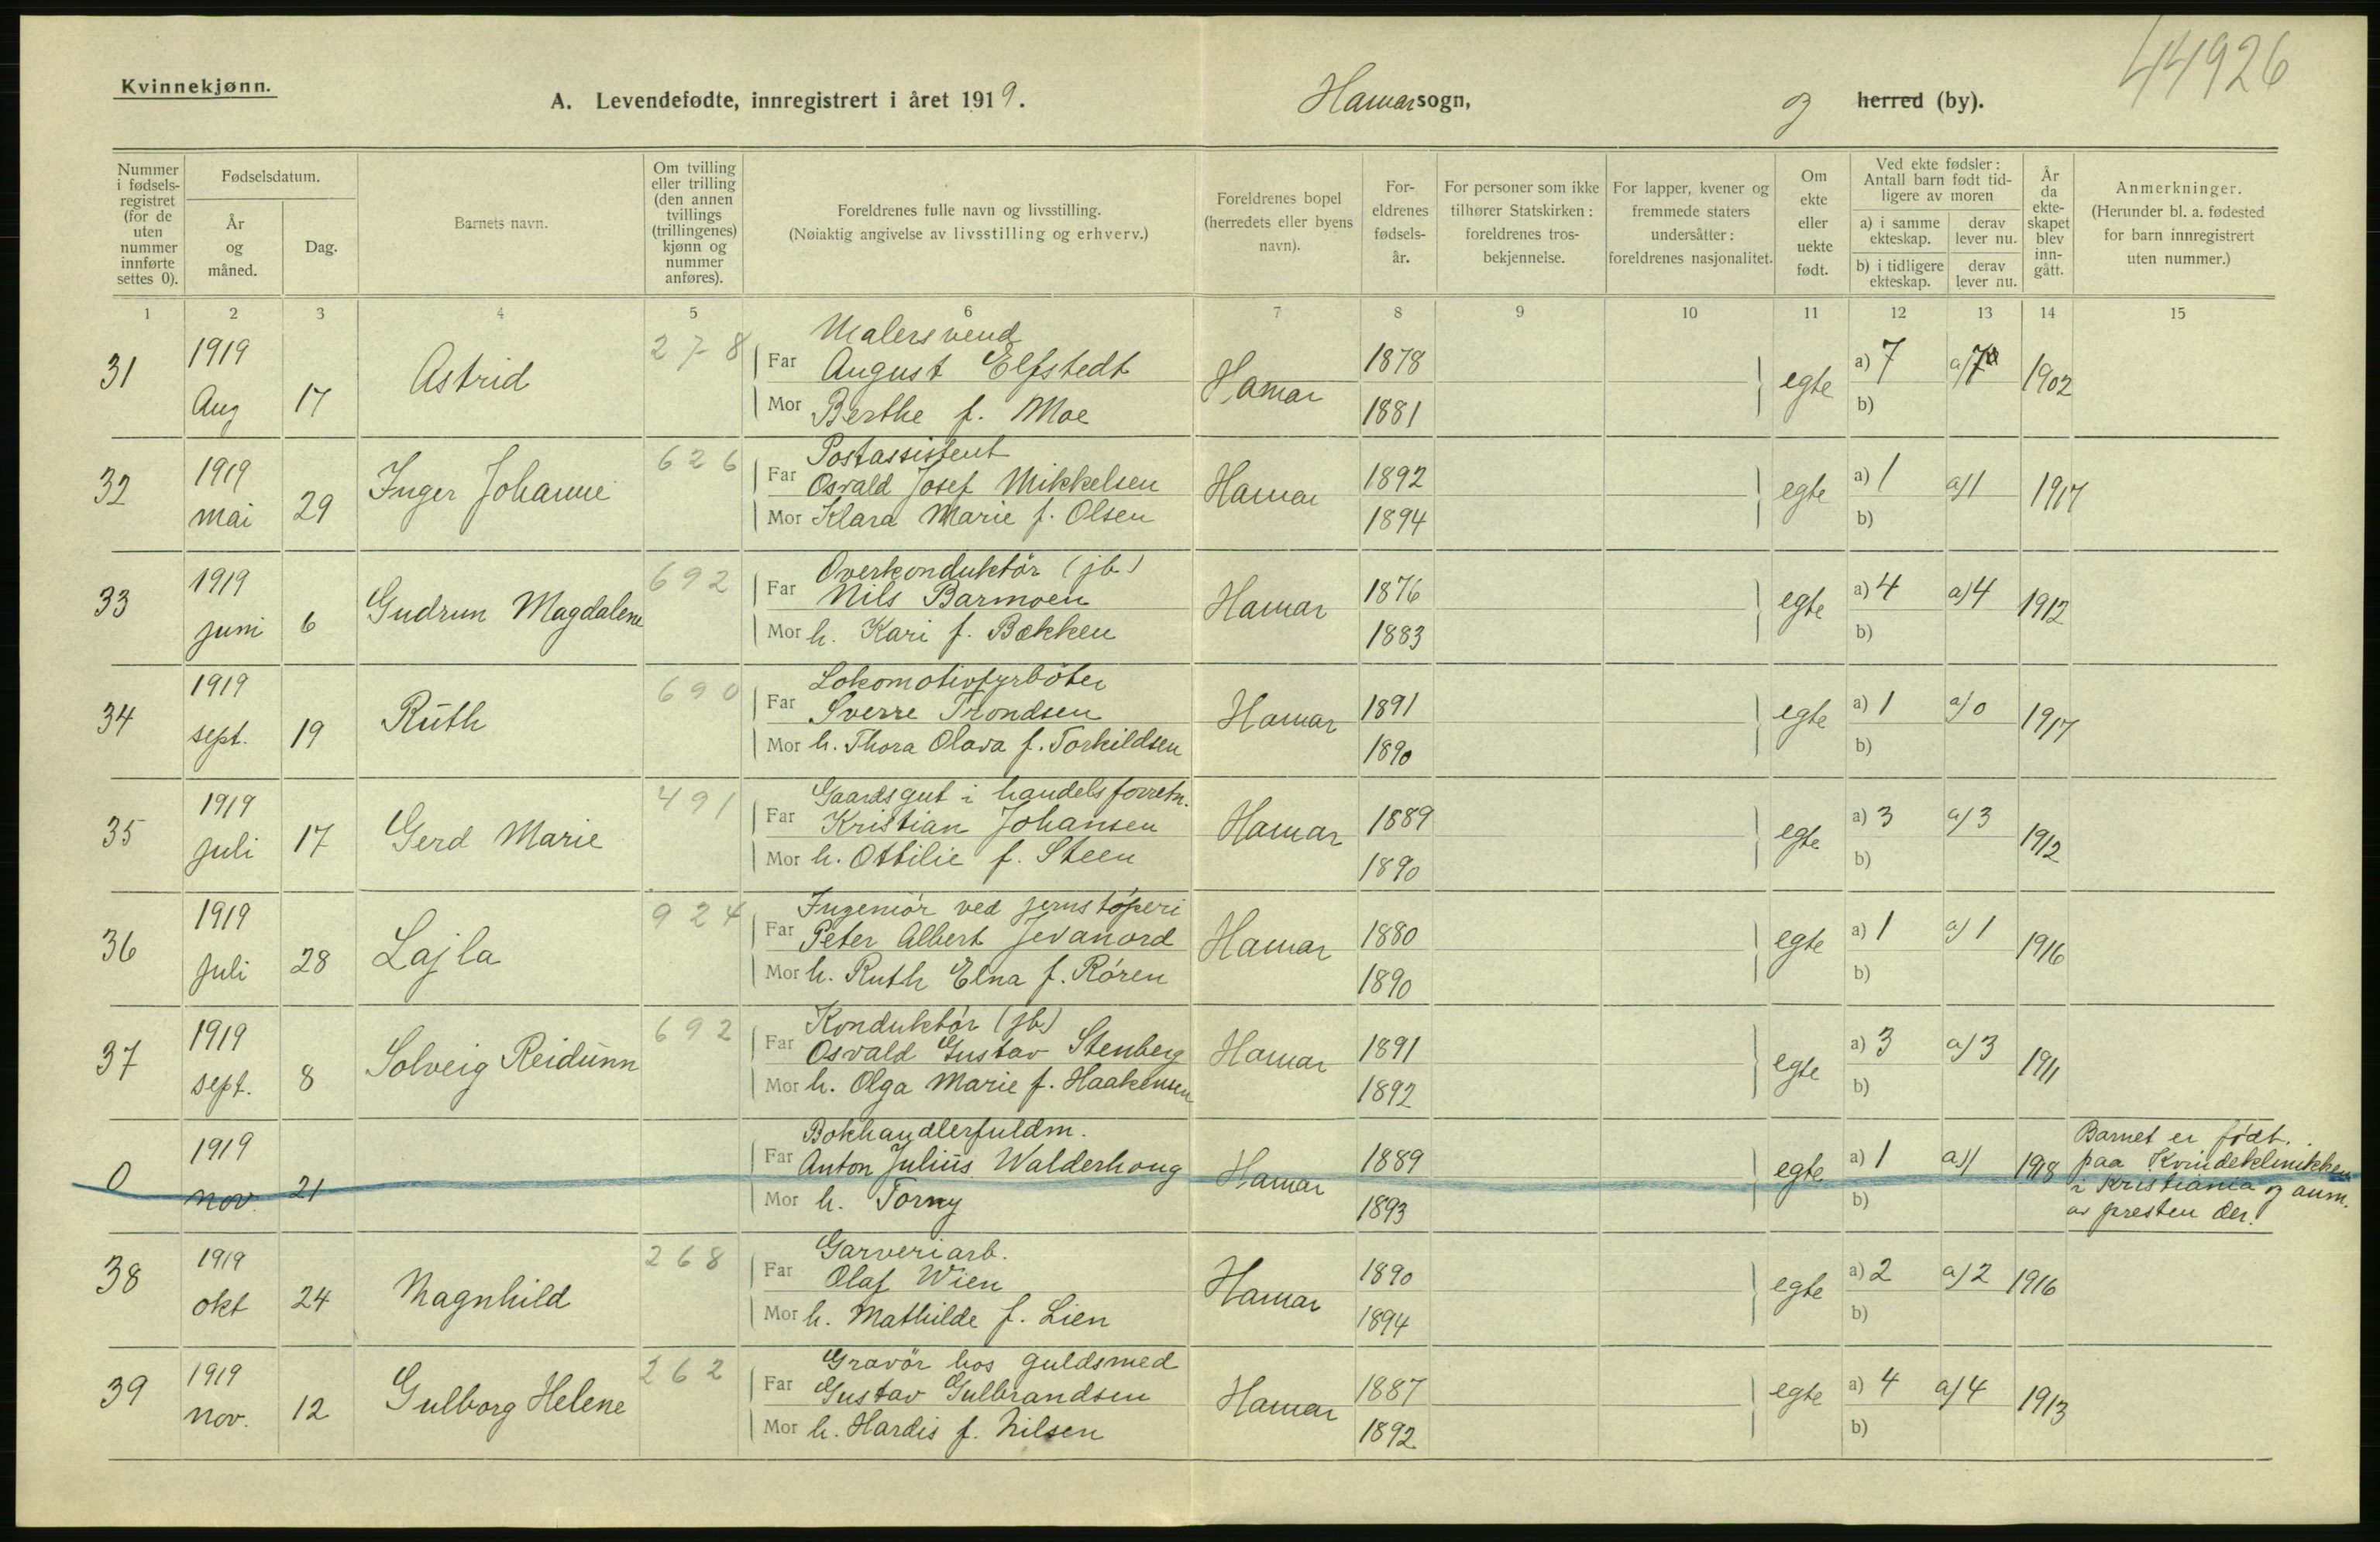 44926
Kvinnekjønn.
A. Levendefødte, innregistrert i året 1919. Hamar sogn, og herred (by).
Nummer i fødsels- registret (for de uten nummer innførte settes 0).
Fødselsdatum.
År og måned.
Dag.
Barnets navn.
Om tvilling eller trilling (den annen tvillings (trillingenes) kjønn og nummer anføres).
Foreldrenes fulle navn og livsstilling.
(Nøiaktig angivelse av livsstilling og erhverv.)
Foreldrenes bopel (herredets eller byens navn).
For- eldrenes fødsels- år.
For personer som ikke tilhører Statskirken: foreldrenes tros- bekjennelse.
For lapper, kvener og fremmede staters undersåtter: foreldrenes nasjonalitet.
Om ekte eller uekte født.
Ved ekte fødsler: Antall barn født tid- ligere av moren
a) i samme ekteskap.
derav lever nu.
b) i tidligere ekteskap.
derav lever nu.
År da ekte- skapet blev inn- gått.
Anmerkninger.
(Herunder bl. a. fødested for barn innregistrert uten nummer.)
1 2 3 4 5 6 7 8 9 10 11 12 13 14 15
31 1919 Aug 17 Astrid 278
Malersvend
Far August Elfstedt
Mor Berthe f. Moe
Hamar 1878 1881 egte a) 7 a) 7 b) 1902
32 1919 mai 29 Inger Johanne 626
Postassistent
Far Osvald Josef Mikkelsen
Mor Klara Marie f. Olsen
Hamar 1892 1894 egte a) 1 a) 1 b) 1917
33 1919 juni 6 Gudrun Magdalene 692
Overkonduktör (jb.)
Far Nils Barmoen
Mor h. Kari f. Bækken
Hamar 1876 1883 egte a) 4 a) 4 b) 1912
34 1919 sept. 19 Ruth 690
Lokomotivfyrböter
Far Sverre Trondsen
Mor h. Thora Olava f. Torkildsen
Hamar 1891 1890 egte a) 1 a) 0 b) 1917
35 1919 juli 17 Gerd Marie 491
Gaardsgut i handelsforretn.
Far Kristian Johansen
Mor h. Ottilie f. Steen
Hamar 1889 1890 egte a) 3 a) 3 b) 1912
36 1919 Juli 28 Lajla 924
Ingeniör ved jernstöperi
Far Peter Albert Jevanord
Mor h. Ruth Elna f. Rören
Hamar 1880 1890 egte a) 1 a) 1 b) 1916
37 1919 sept. 8 Solveig Reidunn 692
Konduktör (jb)
Far Osvald Gustav Stenberg
Mor h. Olga Marie f. Haakensen
Hamar 1891 1892 egte a) 3 a) 3 b) 1911
0 1919 nov. 21
Bokhandlerfuldm.
Far Anton Julius Walderhoug
Mor h. Torny
Hamar 1889 1893 egte a) 1 a) 1 b) 1918
Barnet er födt.
paa Kvindeklinikken
i Kristiania og anm.
av presten der.
38 1919 okt 24 Magnhild 268
Garveriarb.
Far Olaf Wien
Mor h. Mathilde f. Lien
Hamar 1890 1894 egte a) 2 a) 2 b) 1916
39 1919 nov. 12 Gulborg Helene 262
Gravör hos guldsmed
Far Gustav Gulbrandsen
Mor h. Hardis f. Nilsen
Hamar 1887 1892 egte a) 4 a) 4 b) 1913